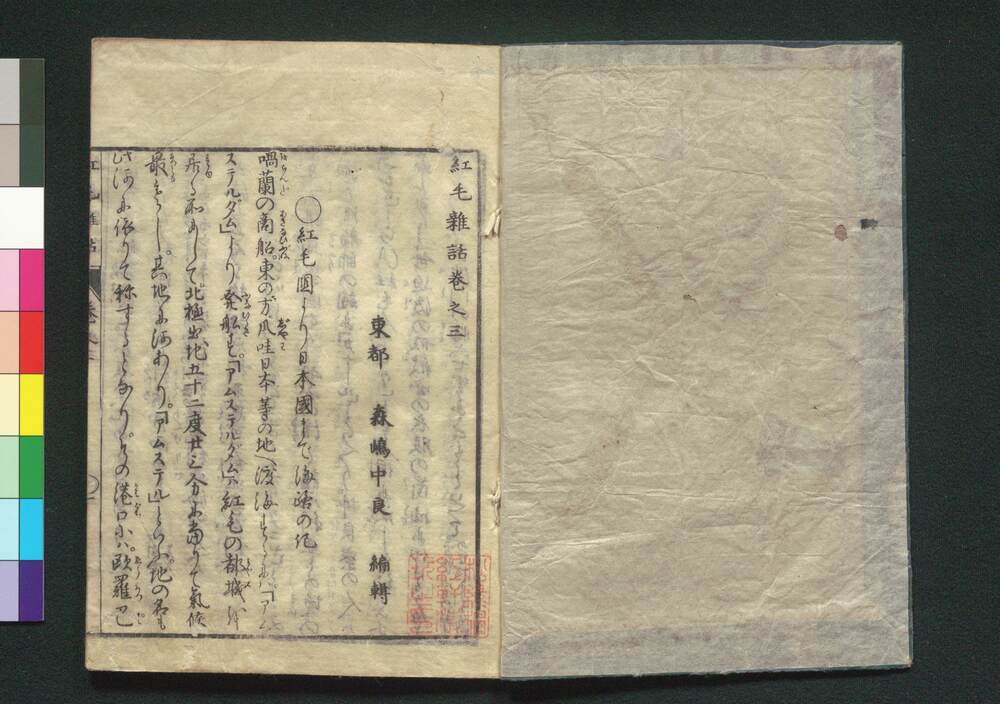 紅毛雜話巻之三
東都 森嶋中良 編輯
紅毛國より日本國まで海路の記
喎蘭の商船。東の方。爪哇日本等の地へ渡海するには。「アム
ステルダム」より発船す。「アムステルダム」ハ紅毛の都城に
して北極出地五十二度廿三分に當りて氣候
最。其地に河あり。「アムステル」といふ。地の名も
此河に依りて称するとなり。その港口に。歐羅巴
紅毛雜話